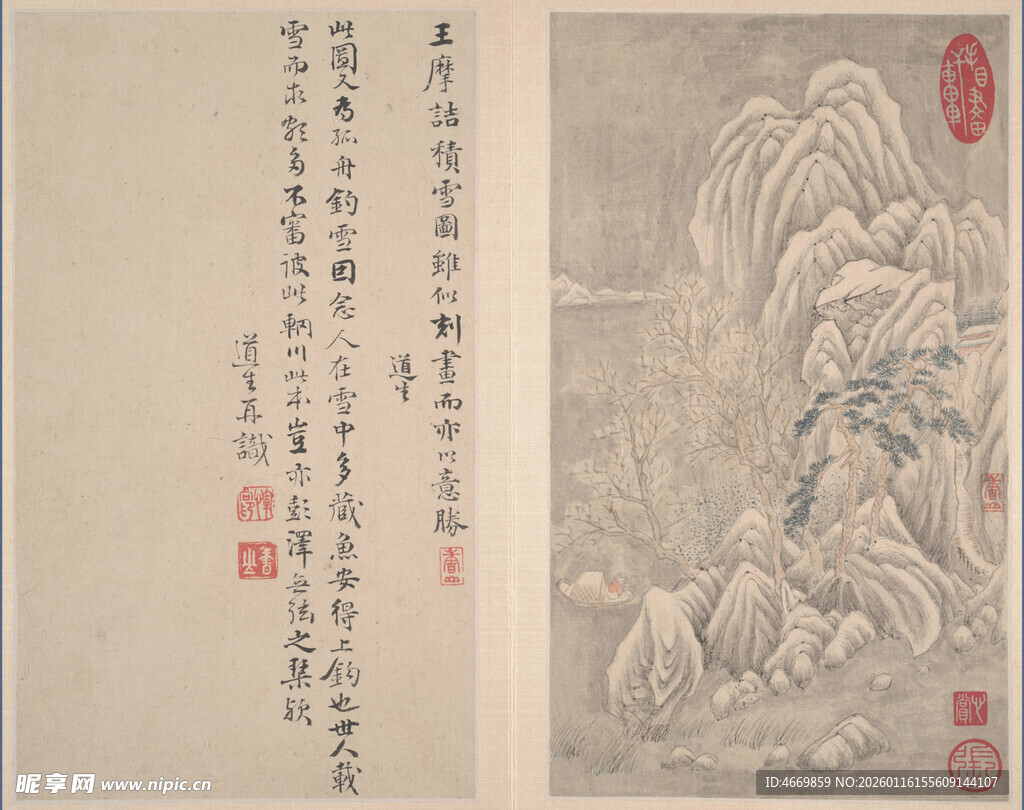 王摩詰積雪圖雖似刻畫而亦以意勝
道生
此圖又為孤舟釣雪因念人在雪中多藏魚安得上鈎也世人載
雪而求貌多不審彼此輞川此本豈亦彭澤無弦之琴歟
道生再識
昵享网 www.nipic.cn
ID:4669859 NO:20260116155609144107